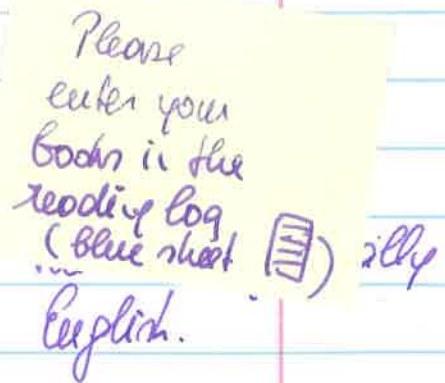 Please
enter your
books in the
reading log
(blue sheet ) illy
English.